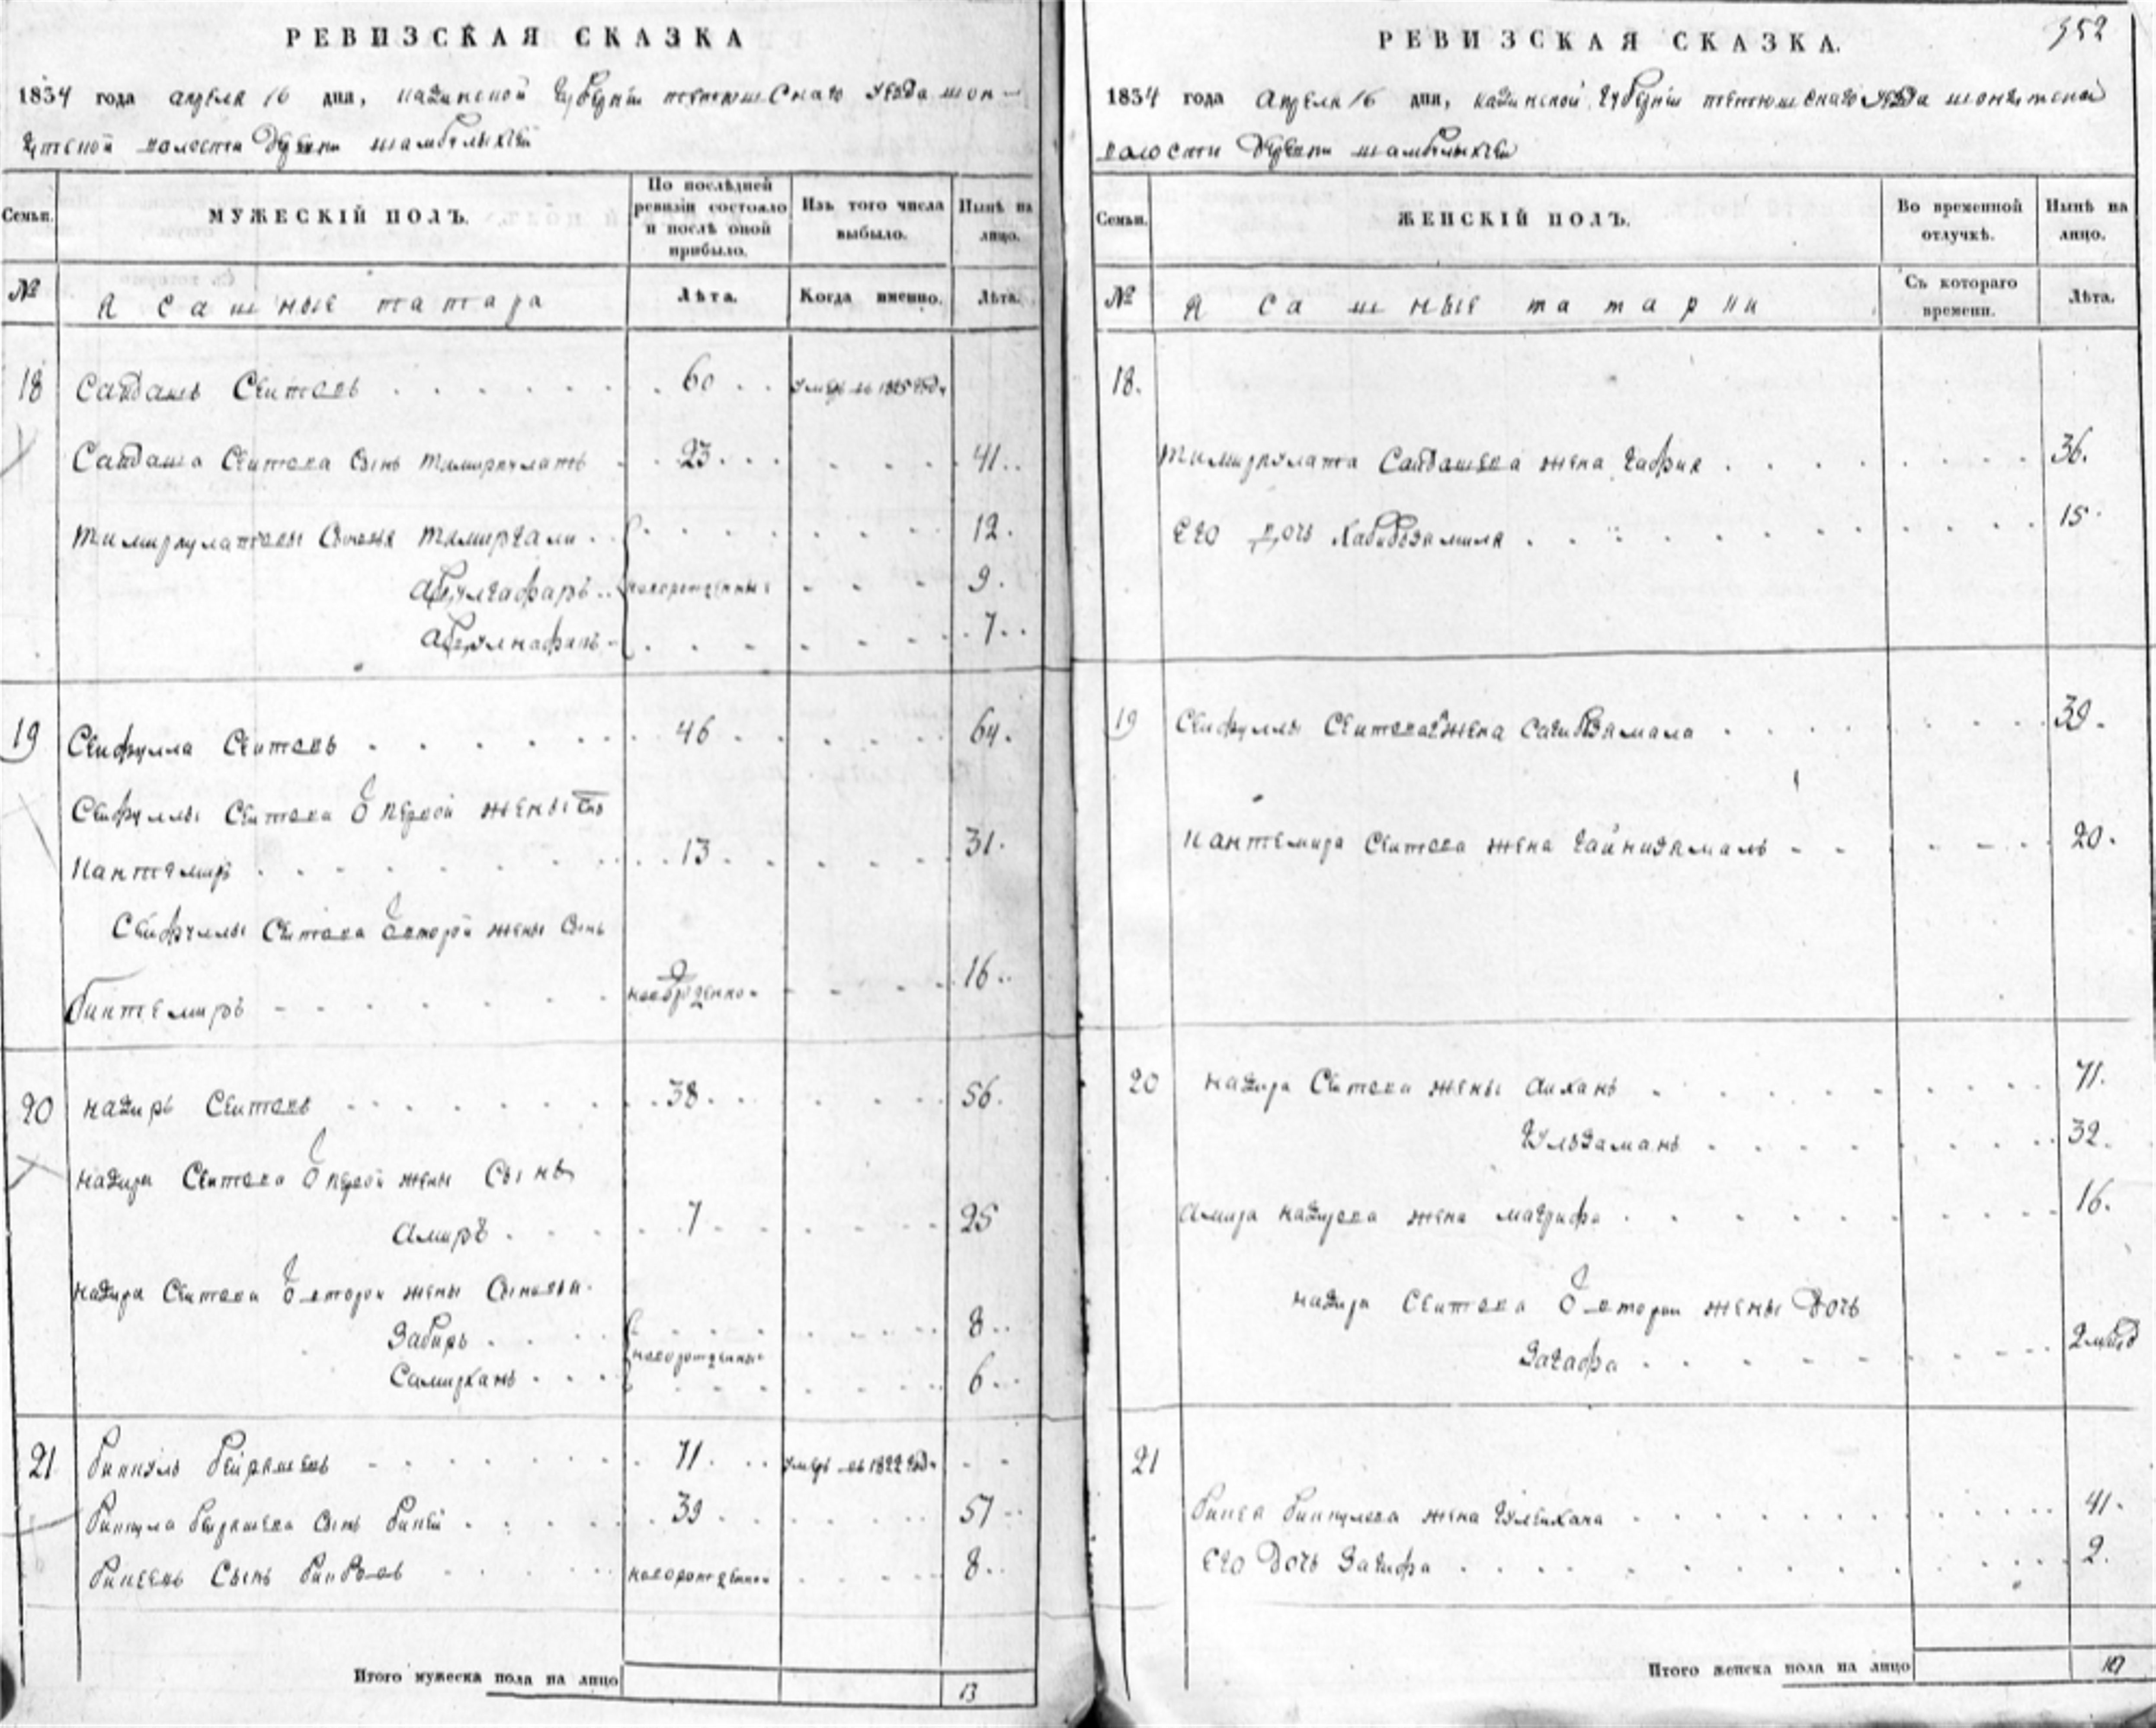 РЕВИЗСКАЯ СКАЗКА
1834 года апреля 16 дня, казанской губернiи тетюшскаго уезда мон-
волости деревни шамбулыхчи
Семьи.
МУЖЕСКIЙ ПОЛЪ.
По послѣдней ревизiи состояло и послѣ оной прибыло.
Изъ того числа выбыло.
Нынѣ на лицо.
№
Ясашные татара
Лѣта.
Когда именно.
Лѣта.
18 Сайдашъ Сеитовъ 60 умеръ въ 1825 году
Сайдаша Сеитова сынъ Тимирпулатъ 23 41
Тимирпулатовы сыновья Тимиргали 12
Абдулгафаръ новорожденные 9
Абдулнафикъ 7
19 Сеифулла Сеитовъ 46 64
Сеифуллы Сеитова о первой жены сынъ
Кантемиръ 13 31
Сеифуллы Сеитова о второй жены сынъ
Бинтемиръ новорожденной 16
20 Надиръ Сеитовъ 38 56
Надира Сеитова о первой жены сынъ
Амиръ 7 25
Надира Сеитова о второй жены сыновья
Забиръ 8
новорожденные
Самирханъ 6
21 Биккулъ Беирашевъ 71 умеръ въ 1822 году
Биккула Беирашева сынъ Бикей 39 57
Бикеевъ сынъ новорожденной 8
Итого мужеска пола на лицо 13
352
РЕВИЗСКАЯ СКАЗКА.
1834 года апреля 16 дня, казанской губернiи тетюшскаго уезда
волости деревни шамбулыхчи
Семьи.
ЖЕНСКIЙ ПОЛЪ.
Во временной отлучкѣ.
Нынѣ на лицо.
№
Ясашные татарки
Съ котораго времени.
Лѣта.
18.
Тимирпулата Сайдашева жена Гафия 36.
Его дочь Хабибзямиля 15
19 Сеифуллы Сеитова жена Сагибзямала 39.
Кантемира Сеитова жена Гайнизямаль 20.
20 Надира Сеитова жены Аиханъ 71.
Гульзамань 32.
Амира Надирова жена Магрифа 16.
Надира Сеитова о второй жены дочь
Загафа
21
Бикея Биккулова жена Гулбикана 41.
Его дочь Загифа 2.
Итого женска пола на лицо 10